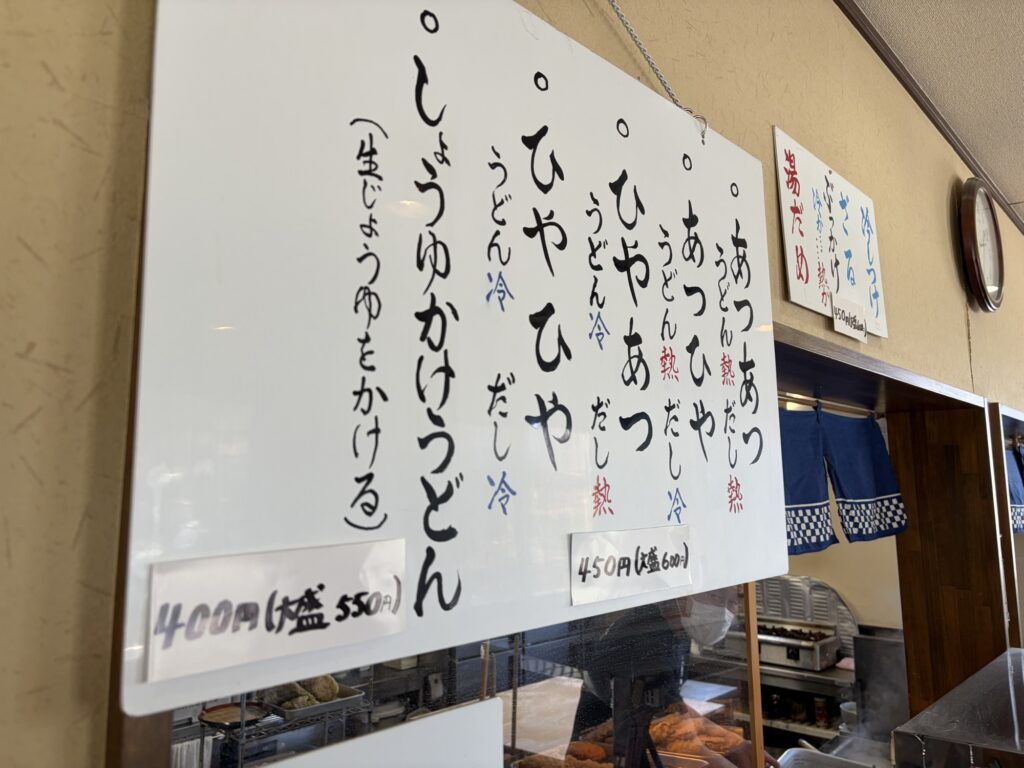 冷しつけ
ざる
ぶっかけ
湯だめ
450円(大盛600円)
。あつあつ
うどん熱だし熱
。あつひや
うどん熱 だし冷
。ひやあつ
うどん冷 だし熱
。ひやひや
うどん冷 だし冷
450円(大盛600円)
。しょうゆかけうどん
(生じょうゆをかける)
400円(大盛 550円)